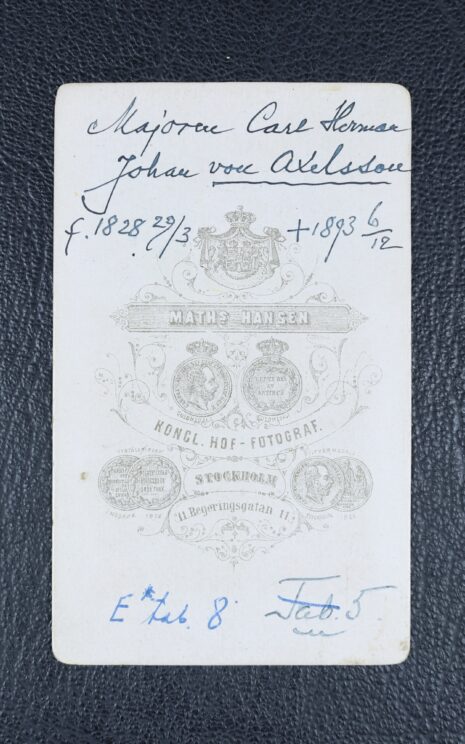 Majoren Carl Herman
Johan von Axelsson
f. 1828 29/3 +1893 6/12
MATHS HANSEN
KONGL. HOF-FOTOGRAF.
STOCKHOLM
11. Regeringsgatan 11.
E* tab. 8 Tab. 5.